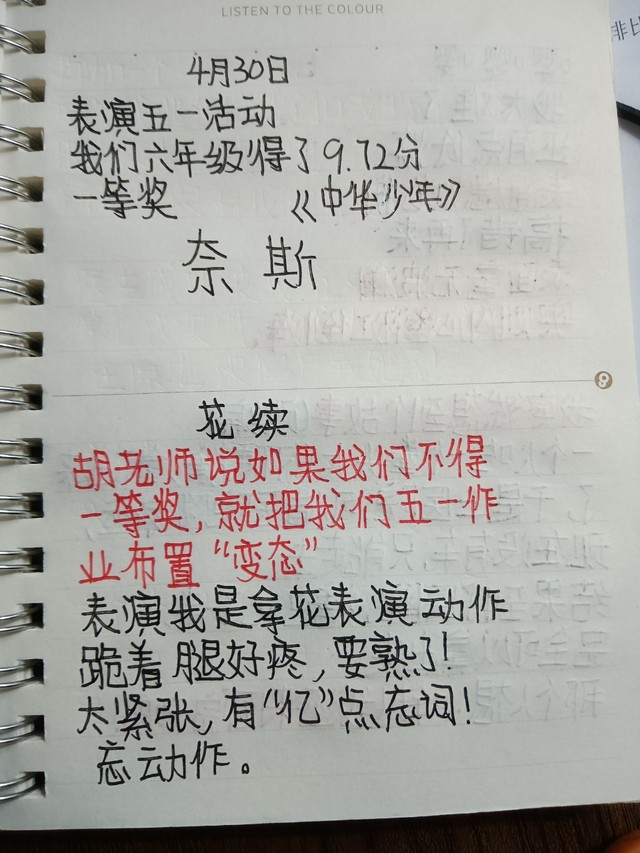 LISTEN TO THE COLOUR
4月30日
表演五一活动
我们六年级得了9.72分
一等奖 《中华少年》
奈斯
9
花续
胡老师说如果我们不得
一等奖,就把我们五一作
业布置“变态”
表演我是拿花表演动作
跪着腿好疼,要熟了!
太紧张,有“亿”点忘词!
忘动作。